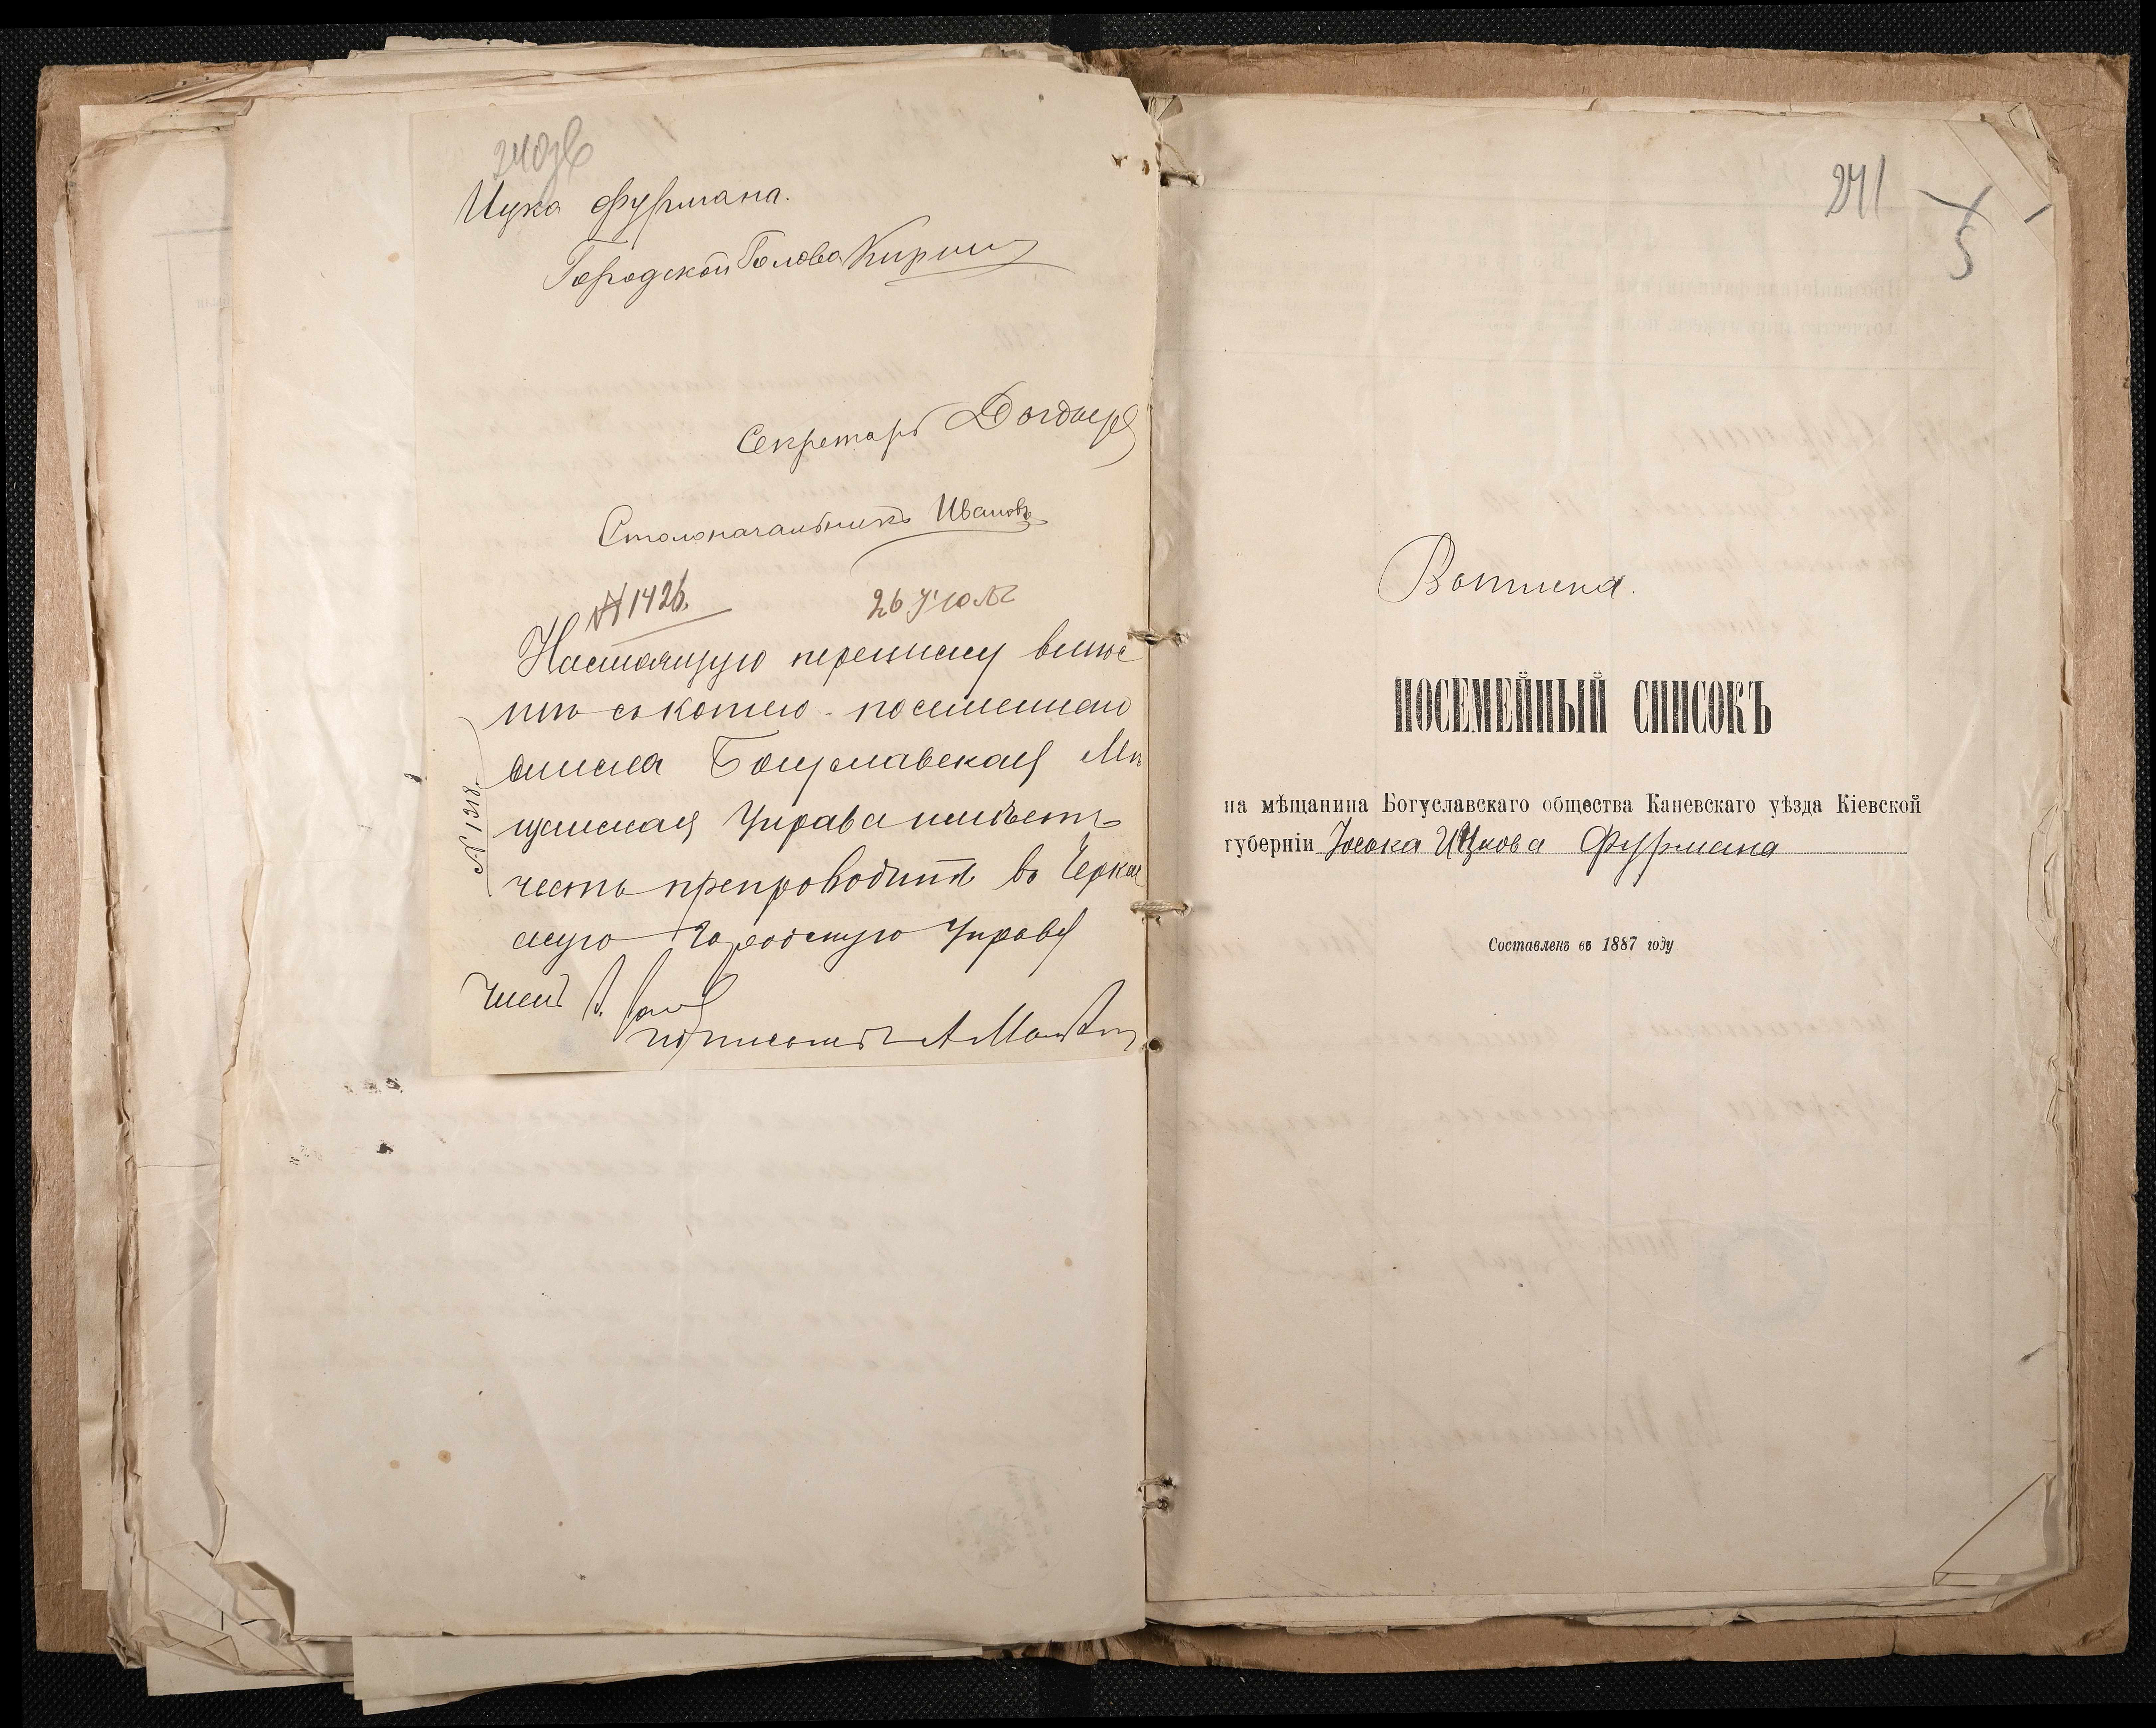 240об
Ицка Фурмана.
Городской Голова
Секретарь
Столоначальникъ Ивановъ
№ 1426.
26 Июля
Настоящую переписку вмѣс
тѣ съ копіею посемейнаго
списка Богуславская Мѣ
щанская Управа имѣетъ
честь препроводить въ Черкас
скую Городскую Управу
№ 1318.
Членъ
241
5
Копія.
ПОСЕМЕЙНЫЙ СПИСОКЪ
на мѣщанина Богуславскаго общества Каневскаго уѣзда Кіевской
губерніи Іоська Ицкова Фурмана
Составленъ въ 1887 году